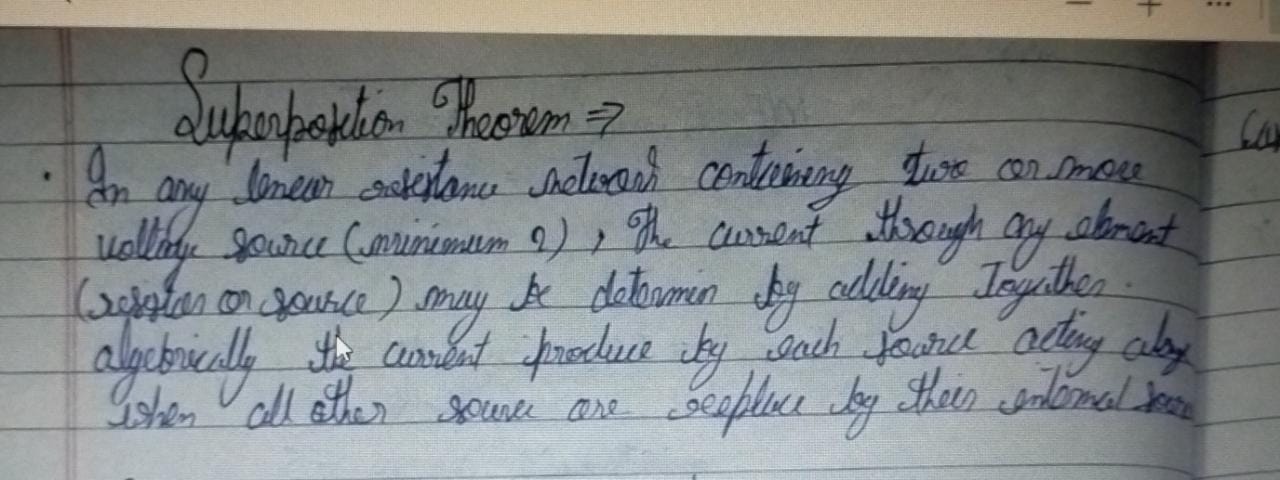 Superposition Theorem ⇒
• In any linear resistance network containing two or more
voltage source (minimum 2), The current through any element
(resistor or source) may be determin by adding Together.
algebrically the current produce by each source acting along
when all other source are replace by their internal